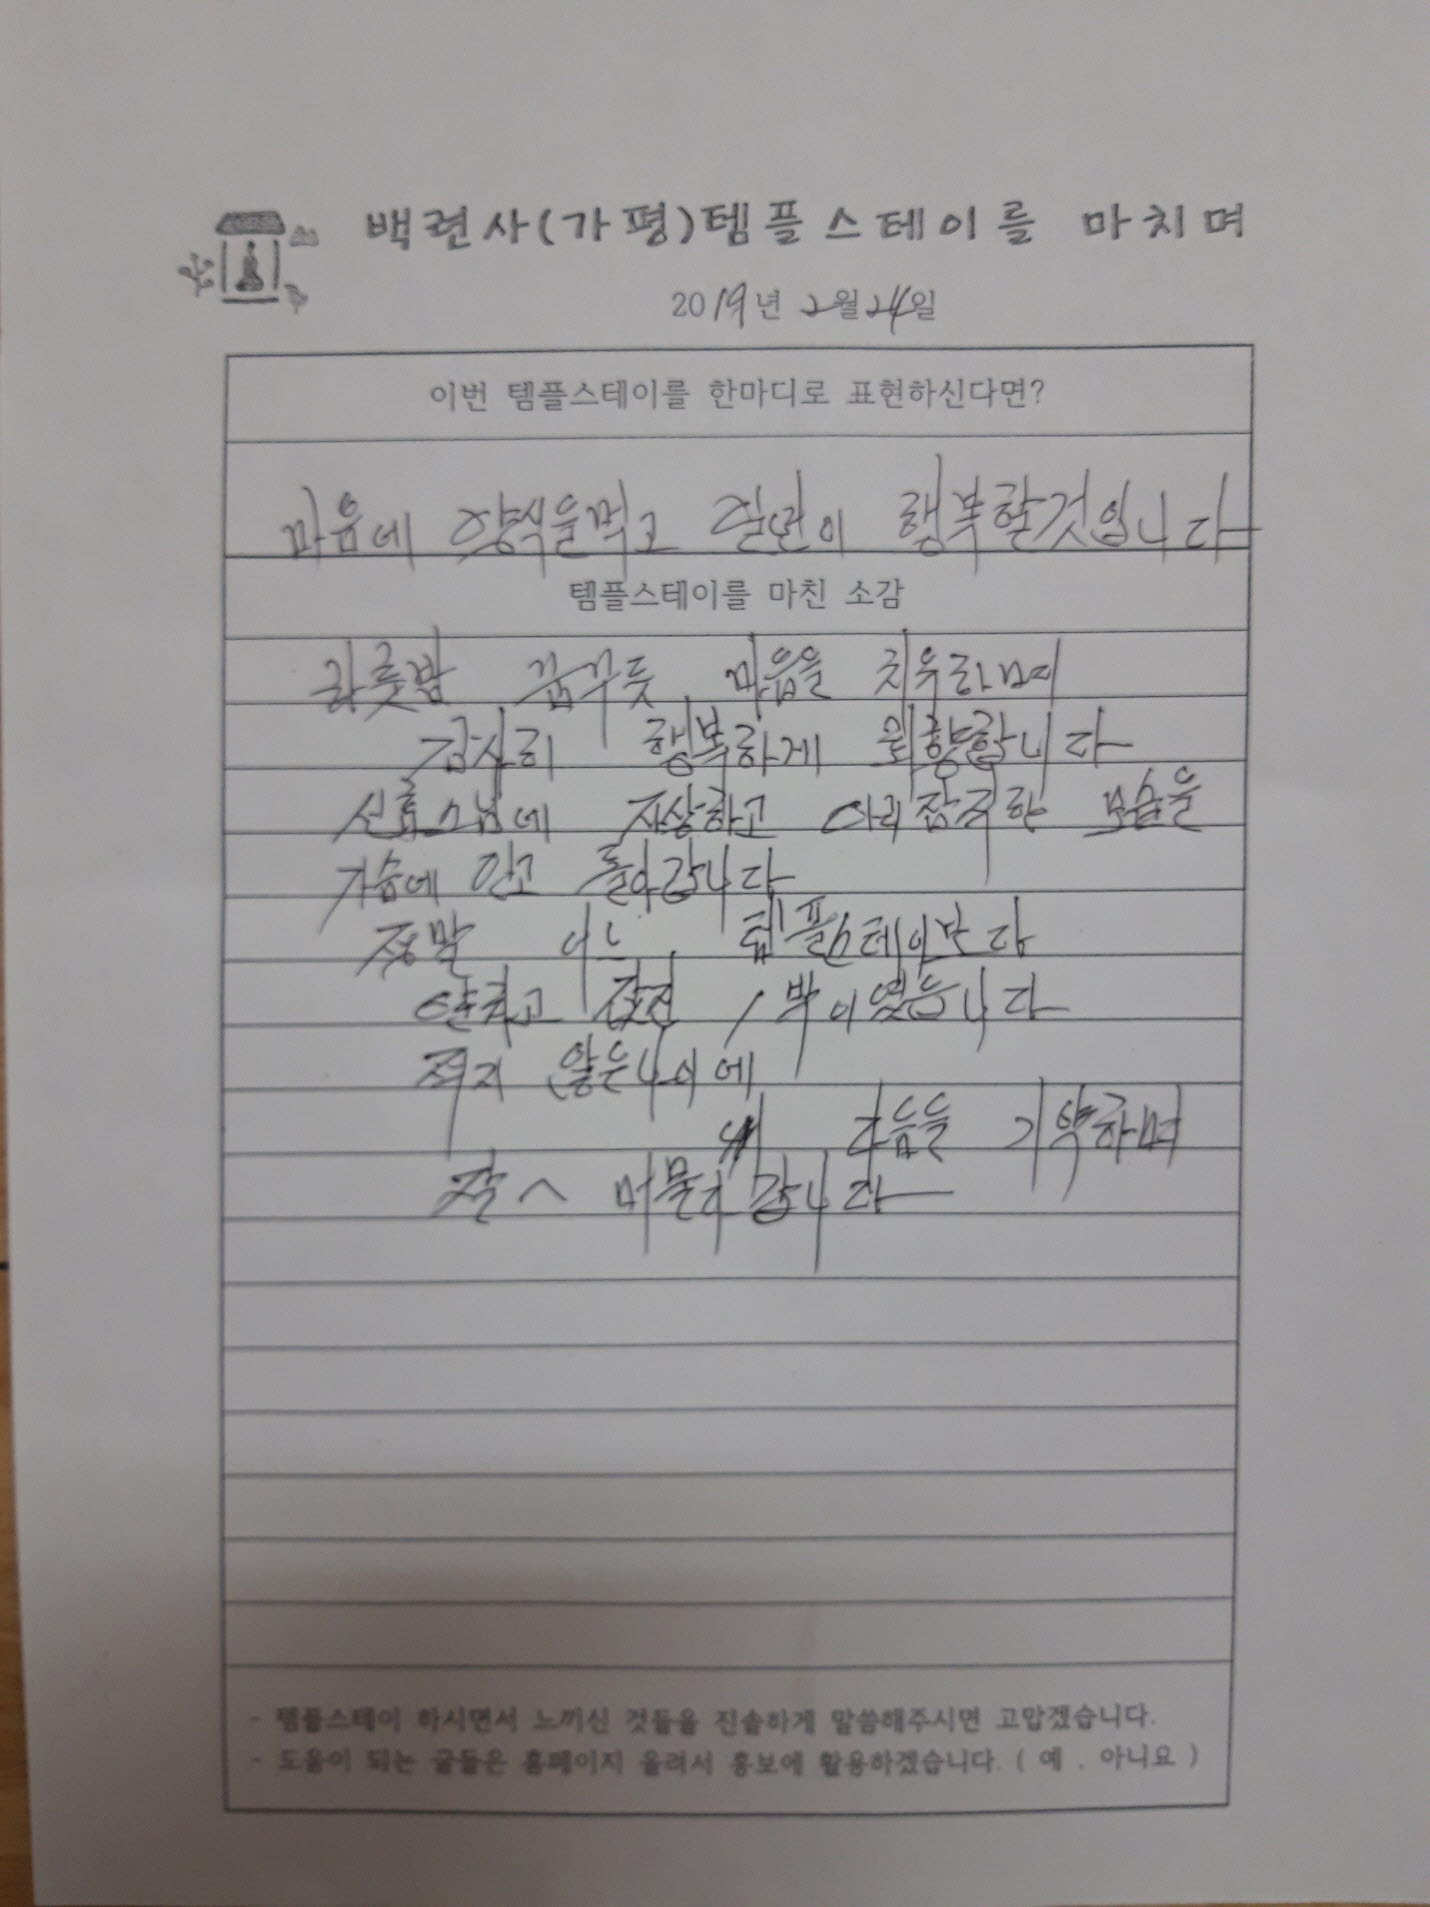 백련사(가평)템플스테이를 마치며
2019년 2월 24일
이번 템플스테이를 한마디로 표현하신다면?
마음에 양식을먹고 일년이 행복할것입니다
템플스테이를 마친 소감
하룻밤 꿈꾸듯 마음을 치유하며
감사히 행복하게 회향합니다
스님에 자상하고 아리잠직한 모습을
가슴에 안고 돌아갑니다
정말 어느 템플스테이보다
알차고 값진 1박이였습니다
적지 않은나이에
새 다음을 기약하며
잘 머물다 갑니다
- 템플스테이 하시면서 느끼신 것들을 진솔하게 말씀해주시면 고맙겠습니다.
- 도움이 되는 글들은 홈페이지 올려서 홍보에 활용하겠습니다. ( 예 . 아니요 )